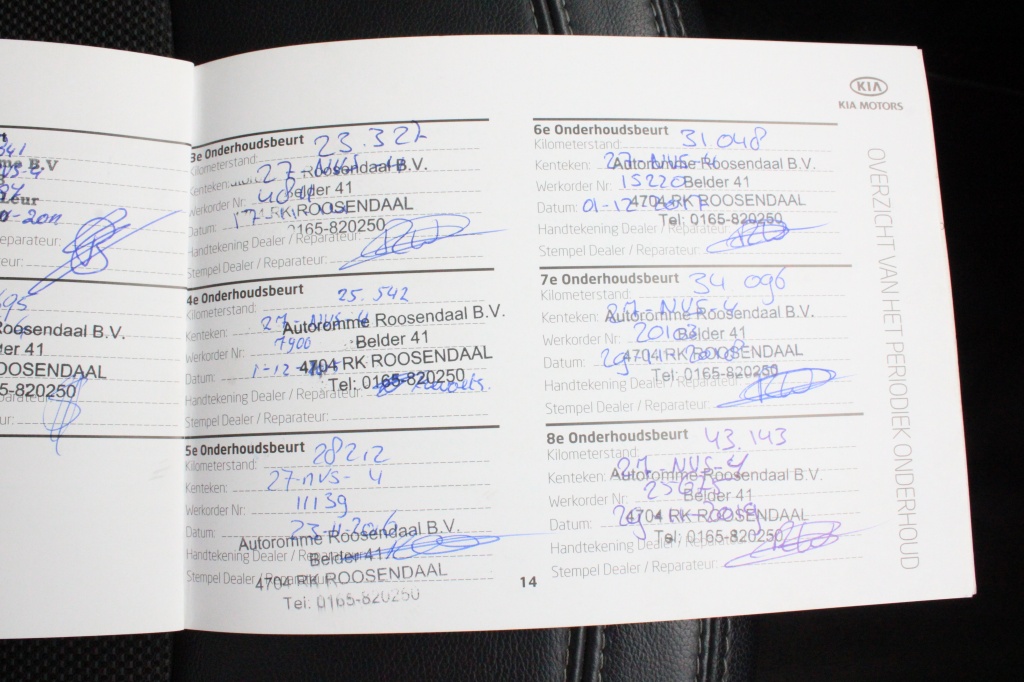 me B.V
Leur
eparateur:
eur:
Roosendaal B.V.
OOSENDAAL
5-820250
3e Onderhoudsbeurt 23.327
Kilometerstand:
Kenteken: 27-NVS-4 Roosendaal B.V.
Werkorder Nr: Belder 41
Datum: 17 RK ROOSENDAAL
0165-820250
Handtekening Dealer / Reparateur:
Stempel Dealer / Reparateur:
4e Onderhoudsbeurt
Kilometerstand: 25.542
Kenteken: 27-NVS-4 Autoromme Roosendaal B.V.
Werkorder Nr: 7900 Belder 41
Datum: 1-12- 4704 RK ROOSENDAAL
Tel: 0165-820250
Handtekening Dealer / Reparateur:
Stempel Dealer / Reparateur:
5e Onderhoudsbeurt
Kilometerstand: 28212
Kenteken: 27-nvs-4
Werkorder Nr: 11139
Datum: 23-11-2016
Autoromme Roosendaal B.V.
Handtekening Dealer / Reparateur:
Belder 41
Stempel Dealer / Reparateur:
4704 RK ROOSENDAAL
Tel: 0165-820250
14
KIA
KIA MOTORS
6e Onderhoudsbeurt 31048
Kilometerstand:
Kenteken: 27-NVS-4 Autoromme Roosendaal B.V.
Werkorder Nr: 15220 Belder 41
Datum: 01-12- 4704 RK ROOSENDAAL
Tel: 0165-820250
Handtekening Dealer / Reparateur:
Stempel Dealer / Reparateur:
7e Onderhoudsbeurt 34 096
Kilometerstand:
Kenteken: 27-NVS-4 Autoromme Roosendaal B.V.
Werkorder Nr: Belder 41
Datum: 4704 RK ROOSENDAAL
Tel: 0165-820250
Handtekening Dealer / Reparateur:
Stempel Dealer / Reparateur:
8e Onderhoudsbeurt 43.143
Kilometerstand:
Kenteken: 27-NVS-4 Autoromme Roosendaal B.V.
Werkorder Nr: Belder 41
Datum: 4704 RK ROOSENDAAL
Tel: 0165-820250
Handtekening Dealer / Reparateur:
Stempel Dealer / Reparateur:
OVERZICHT VAN HET PERIODIEK ONDERHOUD